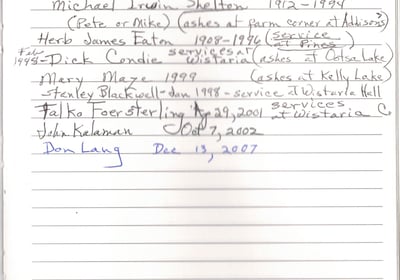 Michael Irwin Shelton 1912-1994
(Pete or Mike) (ashes at farm corner at Addisons?)
Herb James Eaton 1908-1996 (service at Pines)
Feb 1998-Dick Condie services at Wistaria (ashes at Ootsa Lake)
Mary Maze 1999 (ashes at Kelly Lake)
Stanley Blackwell-Jan 1998-service at Wistaria Hall
Falko Foersterling Ap 29, 2001 services at Wistaria C.
John Kalaman Oct 7, 2002
Don Lang Dec 13, 2007